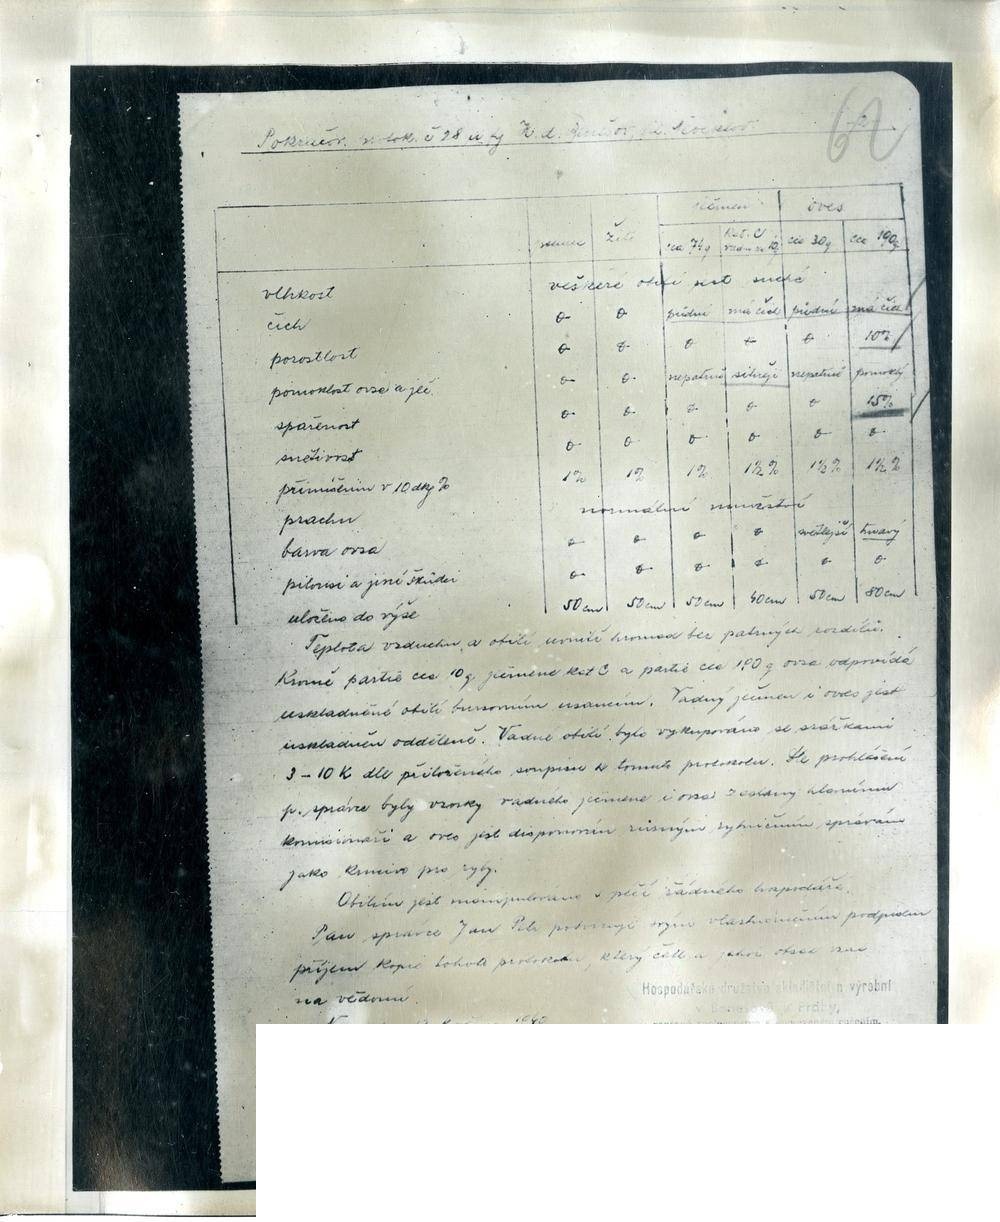 Pokračov. protok. č 28 u fy H. d. Benešov, fil.
62
ječmen oves
pšenice žito cca 74 q kat. C cca 30 q cca 190 q
vlhkost veškeré obilí jest suché
čich 0 0 přirozený má čich přirozený má čich
porostlost 0 0 0 0 0 10%
pomoklost ovsa a ječ. 0 0 nepatrně silněji nepatrně pomoklý
spařenost 0 0 0 0 0 15%
snětivost 0 0 0 0 0 0
přimíšenin v 10 dkg % 1% 1% 1% 1½% 1½% 1½%
prachu normální množství
barva ovsa 0 0 0 0 světlejší tmavý
pilousi a jiní škůdci 0 0 0 0 0 0
uloženo do výše 50 cm 50 cm 50 cm 40 cm 50 cm 80 cm
Teplota vzduchu a obilí uvnitř hromad bez patrných rozdílů.
Kromě partie cca 10 q ječmene kat C a partie cca 190 q ovsa odpovídá
uskladněné obilí bursovním usancím. Vadný ječmen i oves jest
uskladněn odděleně. Vadné obilí bylo vykupováno se srážkami
3 – 10 K dle přiloženého soupisu k tomuto protokolu. Dle prohlášení
p. správce byly vzorky vadného ječmene i ovsa zaslány hlavnímu
komisionáři a oves jest disponován různým rybničním správám
jako krmivo pro ryby.
Obilím jest manipulováno s péčí řádného hospodáře.
Pan správce Jan Petr potvrzuje svým vlastnoručním podpisem
příjem kopie tohoto protokolu, který četl a jehož obsah vzal
na vědomí.
Hospodářské družstvo skladištní a výrobní
v Benešově u Prahy,
1940